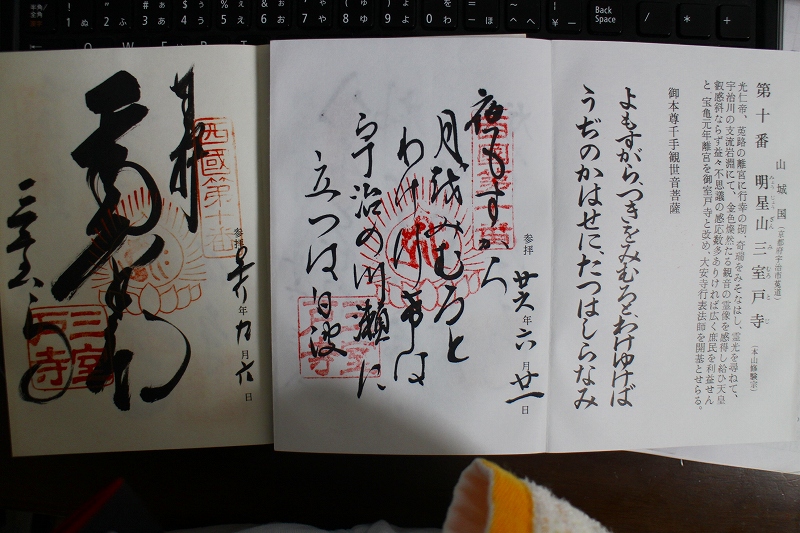 山城国（京都府宇治市莵道）
第十番 明星山 三室戸寺（本山修験宗）
光仁帝、莵路の離宮に行幸の砌、奇瑞をみそなはし、霊光を尋ねて、
宇治川の支流岩淵にて、金色燦然たる観音の霊像を感得し給ひ天皇
叡感斜ならず益々不思議の感応数多ありければ広く庶民を利益せん
と 宝亀元年離宮を御室戸寺と改め、大安寺行表法師を開基とせらる。
よもすがら、つきをみむろと、わけゆけば
うぢのかはせに、たつはしらなみ
御本尊千手観世音菩薩
参拝 廿六年六月廿一日
夜もすから
月越みむろと
わけ行希は
宇治の川瀬に
立つは白波
西国第十番
三室戸寺
参拝 年九月六日
奉拝
西國第十番
三室戸寺
Back
Space